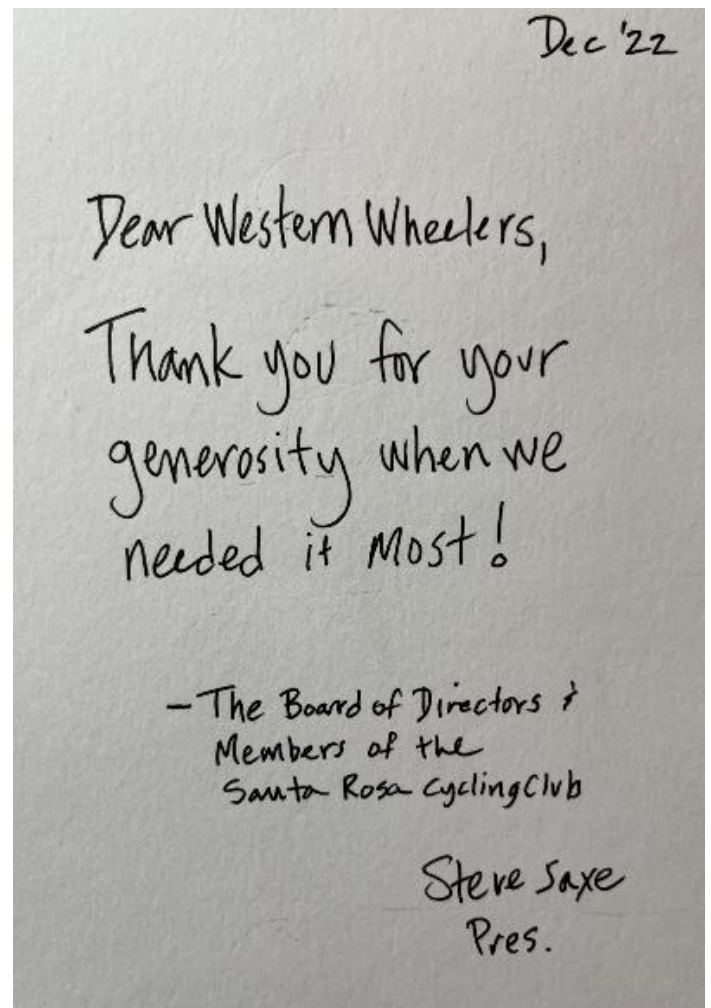 Dec '22
Dear Western Wheelers,
Thank you for your
generosity when we
needed it most!
- The Board of Directors &
Members of the
Santa Rosa Cycling Club
Steve Saxe
Pres.